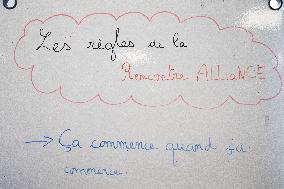 Les règles de la
Rencontre ALLIANCE
→ Ça commence quand ça
commence.